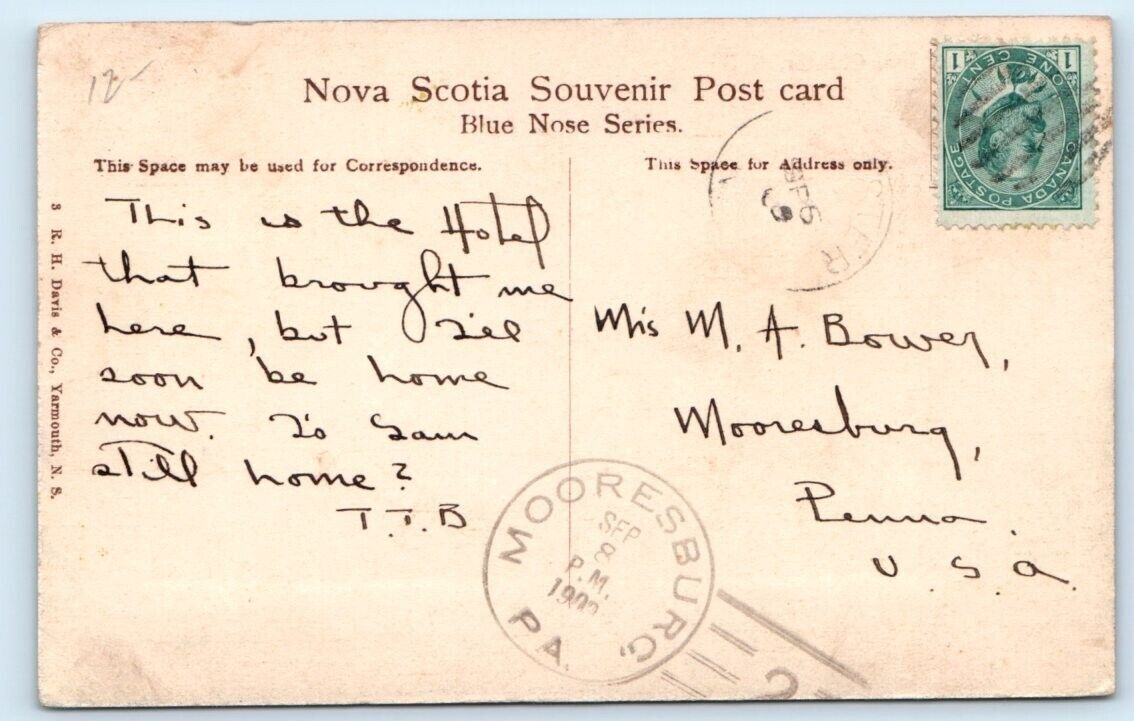 12-
Nova Scotia Souvenir Post card
Blue Nose Series.
This Space may be used for Correspondence.
This Space for Address only.
This is the Hotel
that brought me
here, but I'll
soon be home
now. Is Sam
still home?
T. T. B
Mis M. A. Bower,
Mooresburg,
Penna.
U S A.
3 R. H. Davis & Co., Yarmouth, N. S.
1 ONE CENT 1
CANADA POSTAGE
SP 5
MOORESBURG,
SEP
8
P.M.
PA.